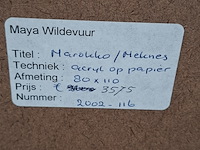 Maya Wildevuur
Titel : Marokko/Meknes
Techniek : acryl op papier
Afmeting : 80 x 110
Prijs : € 3575
Nummer : 2002-116